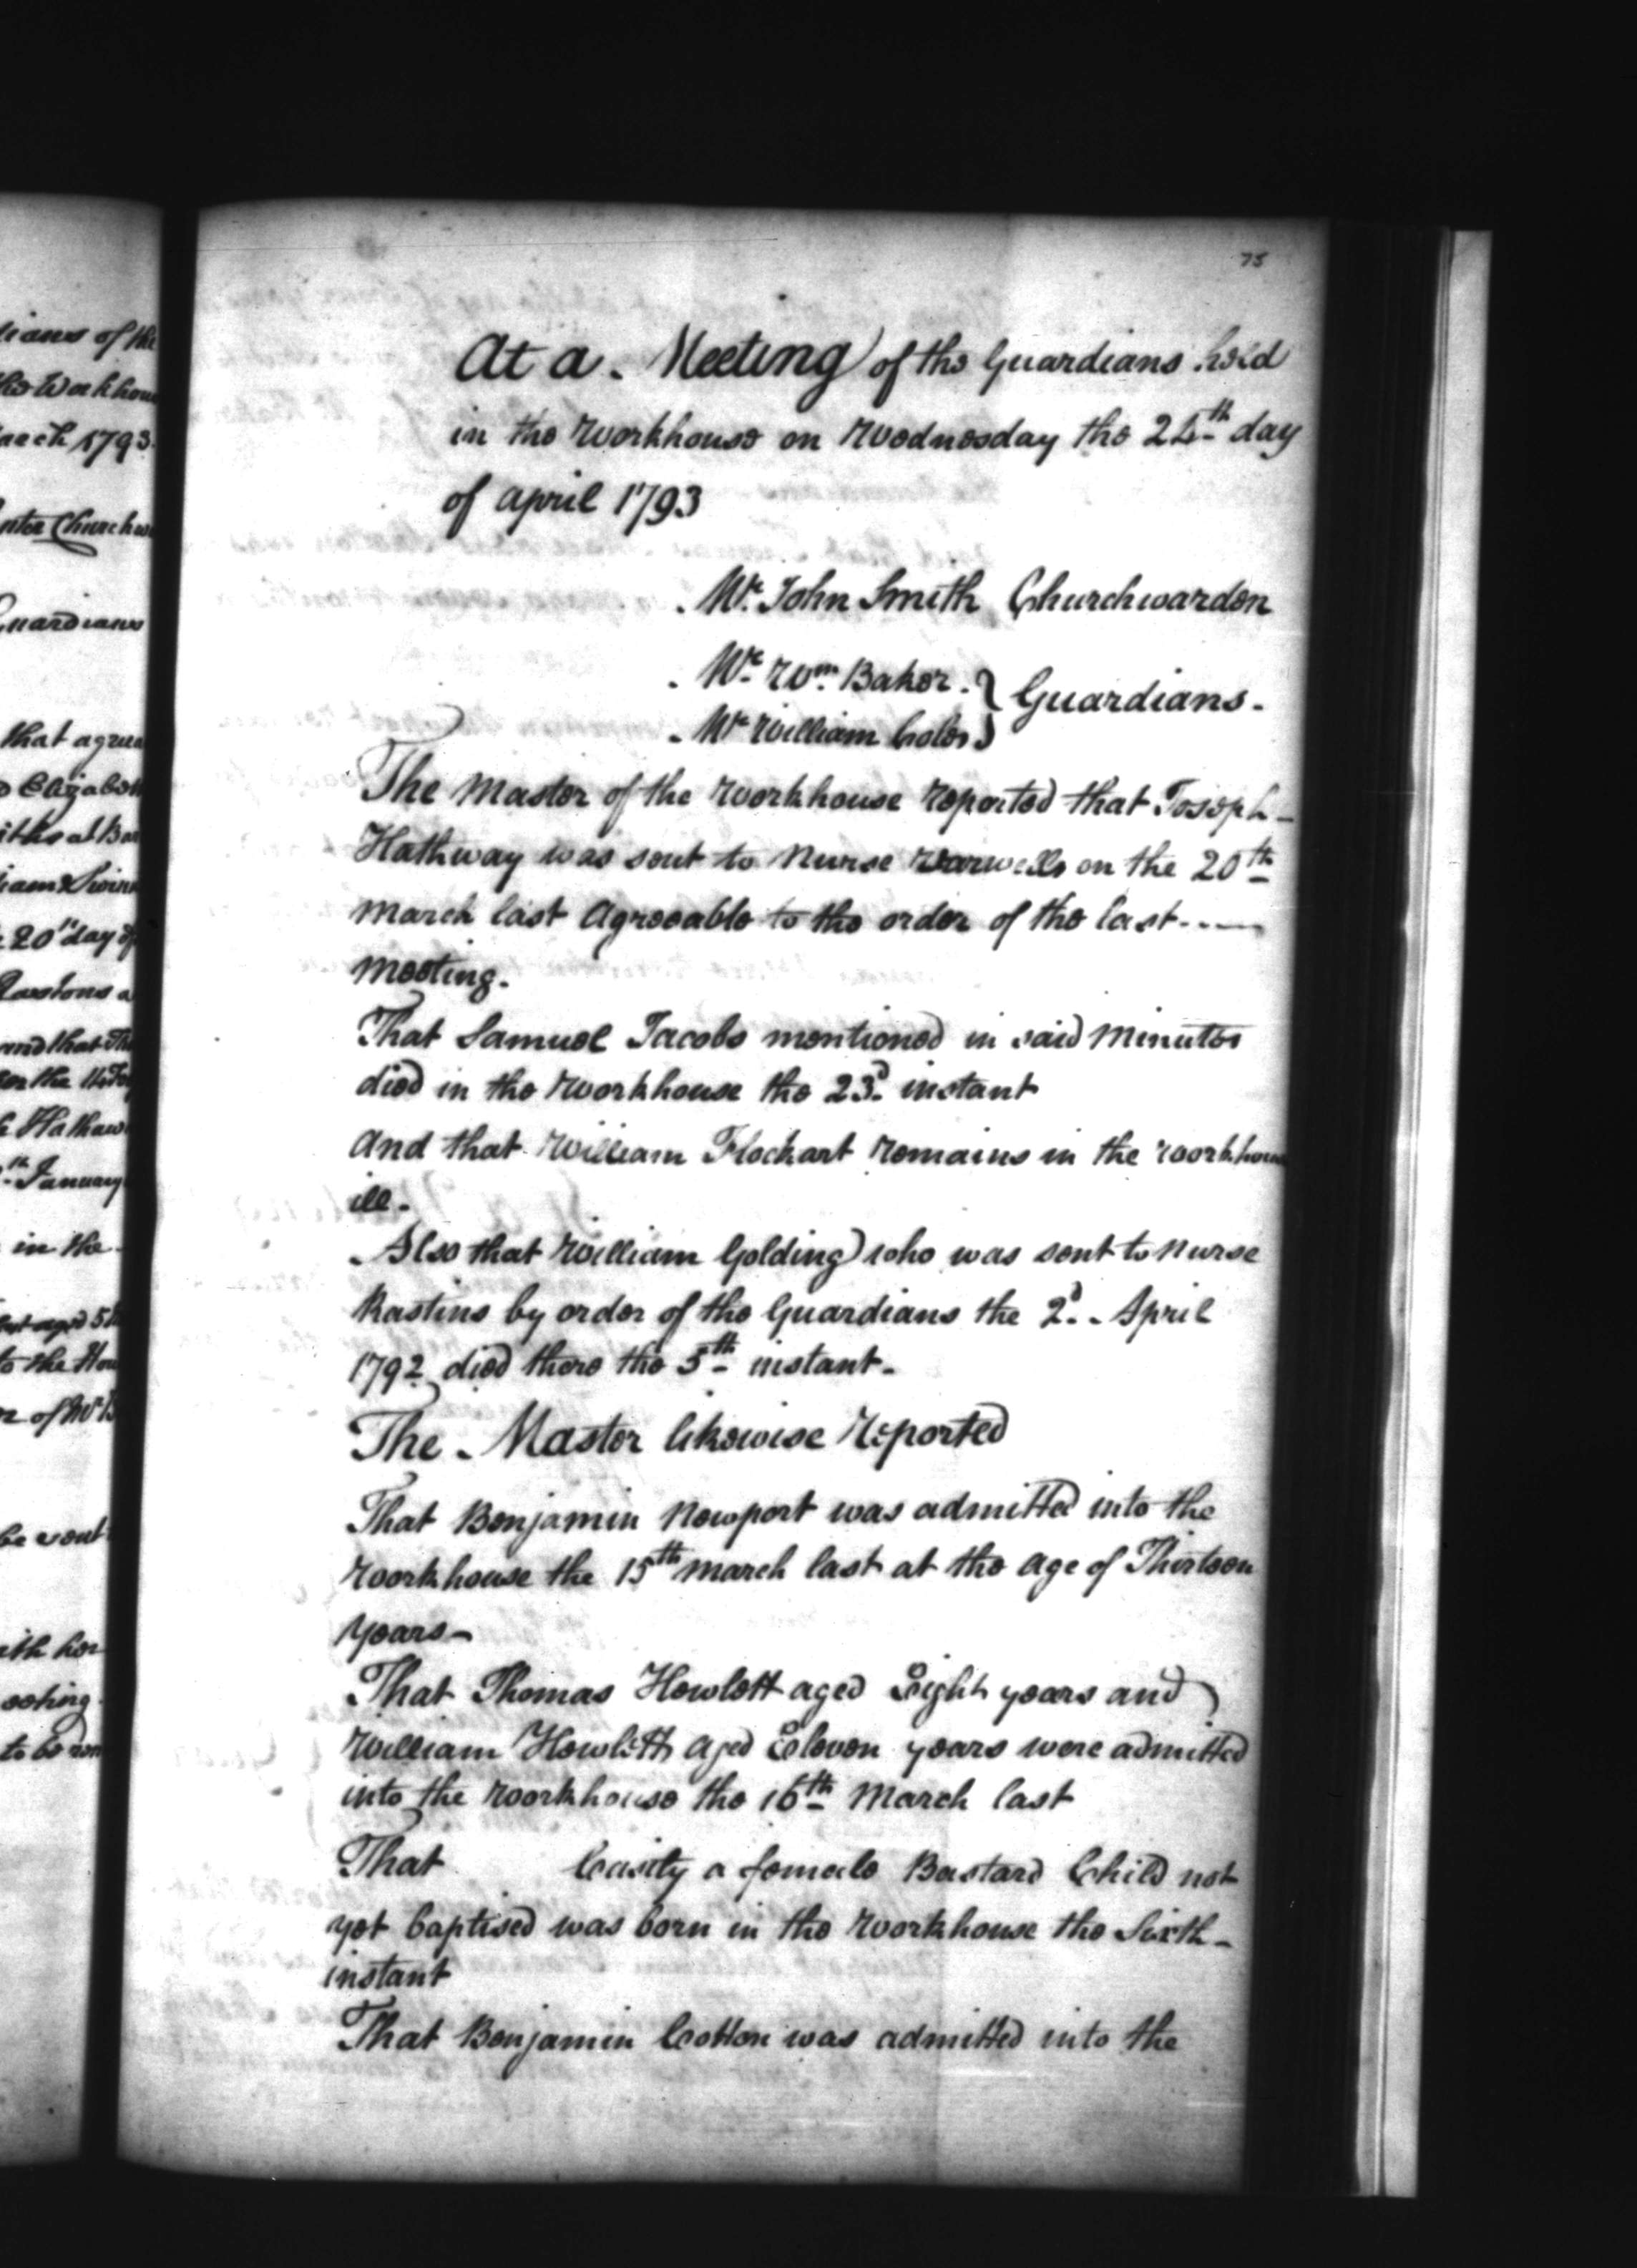 lians of the
March 1793
Guardians
that agree
Elizabeth
20th day of
and that
January
in the
to the
be sent
with her
75
At a Meeting of the Guardians held
in the Workhouse on Wednesday the 24th day
of April 1793
Mr. John Smith Churchwarden
Mr. Wm. Baker } Guardians.
Mr William Coles
The Master of the Workhouse reported that Joseph
Hathway was sent to Nurse on the 20th
March last Agreeable to the order of the last
Meeting.
That Samuel Jacobs mentioned in said Minutes
died in the Workhouse the 23d. instant
And that William Flockart remains in the workhouse
ill.
Also that William Golding who was sent to Nurse
Rastins by order of the Guardians the 2d. April
1792 died there the 5th instant.
The Master likewise Reported
That Benjamin Newport was admitted into the
Workhouse the 15th March last at the age of Thirteen
years
That Thomas Howlett aged Eight years and
William Howlett aged Eleven years were admitted
into the Workhouse the 16th March last
That Casity a female Bastard Child not
yet baptised was born in the Workhouse the Sixth
instant
That Benjamin Cotton was admitted into the